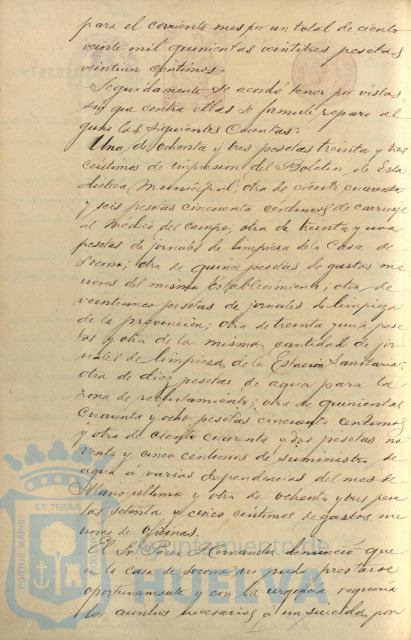 para el corriente mes por un total de ciento
veinte mil quinientas veintitres pesetas
veintiun centimos.
Seguidamente se acordó tener por vistas
sin que contra ellas se formule reparo al
guno las siguientes Cuentas:
Una de ochenta y tres pesetas treinta y tres
centimos de impresion del Boletin de Esta
distica Municipal; otra de ciento cuarenta
y seis pesetas cincuenta centimos de carruaje
al Médico del campo; otra de treinta y una
pesetas de jornales de limpieza de la Casa de
Socorro; otra de quince pesetas de gastos me
nores del mismo Establecimiento; otra de
veinticinco pesetas de jornales de limpieza
de la prevencion; otra de treinta y una pese
tas y otra de la misma cantidad de jor
nales de limpieza de la Estacion Sanitaria;
otra de diez pesetas de agua para la
zona de reclutamiento; otra de quinientas
cuarenta y ocho pesetas cincuenta centimos
y otra de ciento cuarenta y dos pesetas no
venta y cinco centimos de suministro de
agua á varias dependencias del mes de
Mayo ultimo y otra de ochenta y tres pese
tas setenta y cinco centimos de gastos me
nores de oficinas.
El Sr. Hernandez denunció que
en la casa de socorro no pudo prestarse
oportunamente y con la urgencia requeria
los auxilios necesarios á un suicida por
PORTUS MARIS
ET TERRÆ
Ayuntamiento de
HUELVA